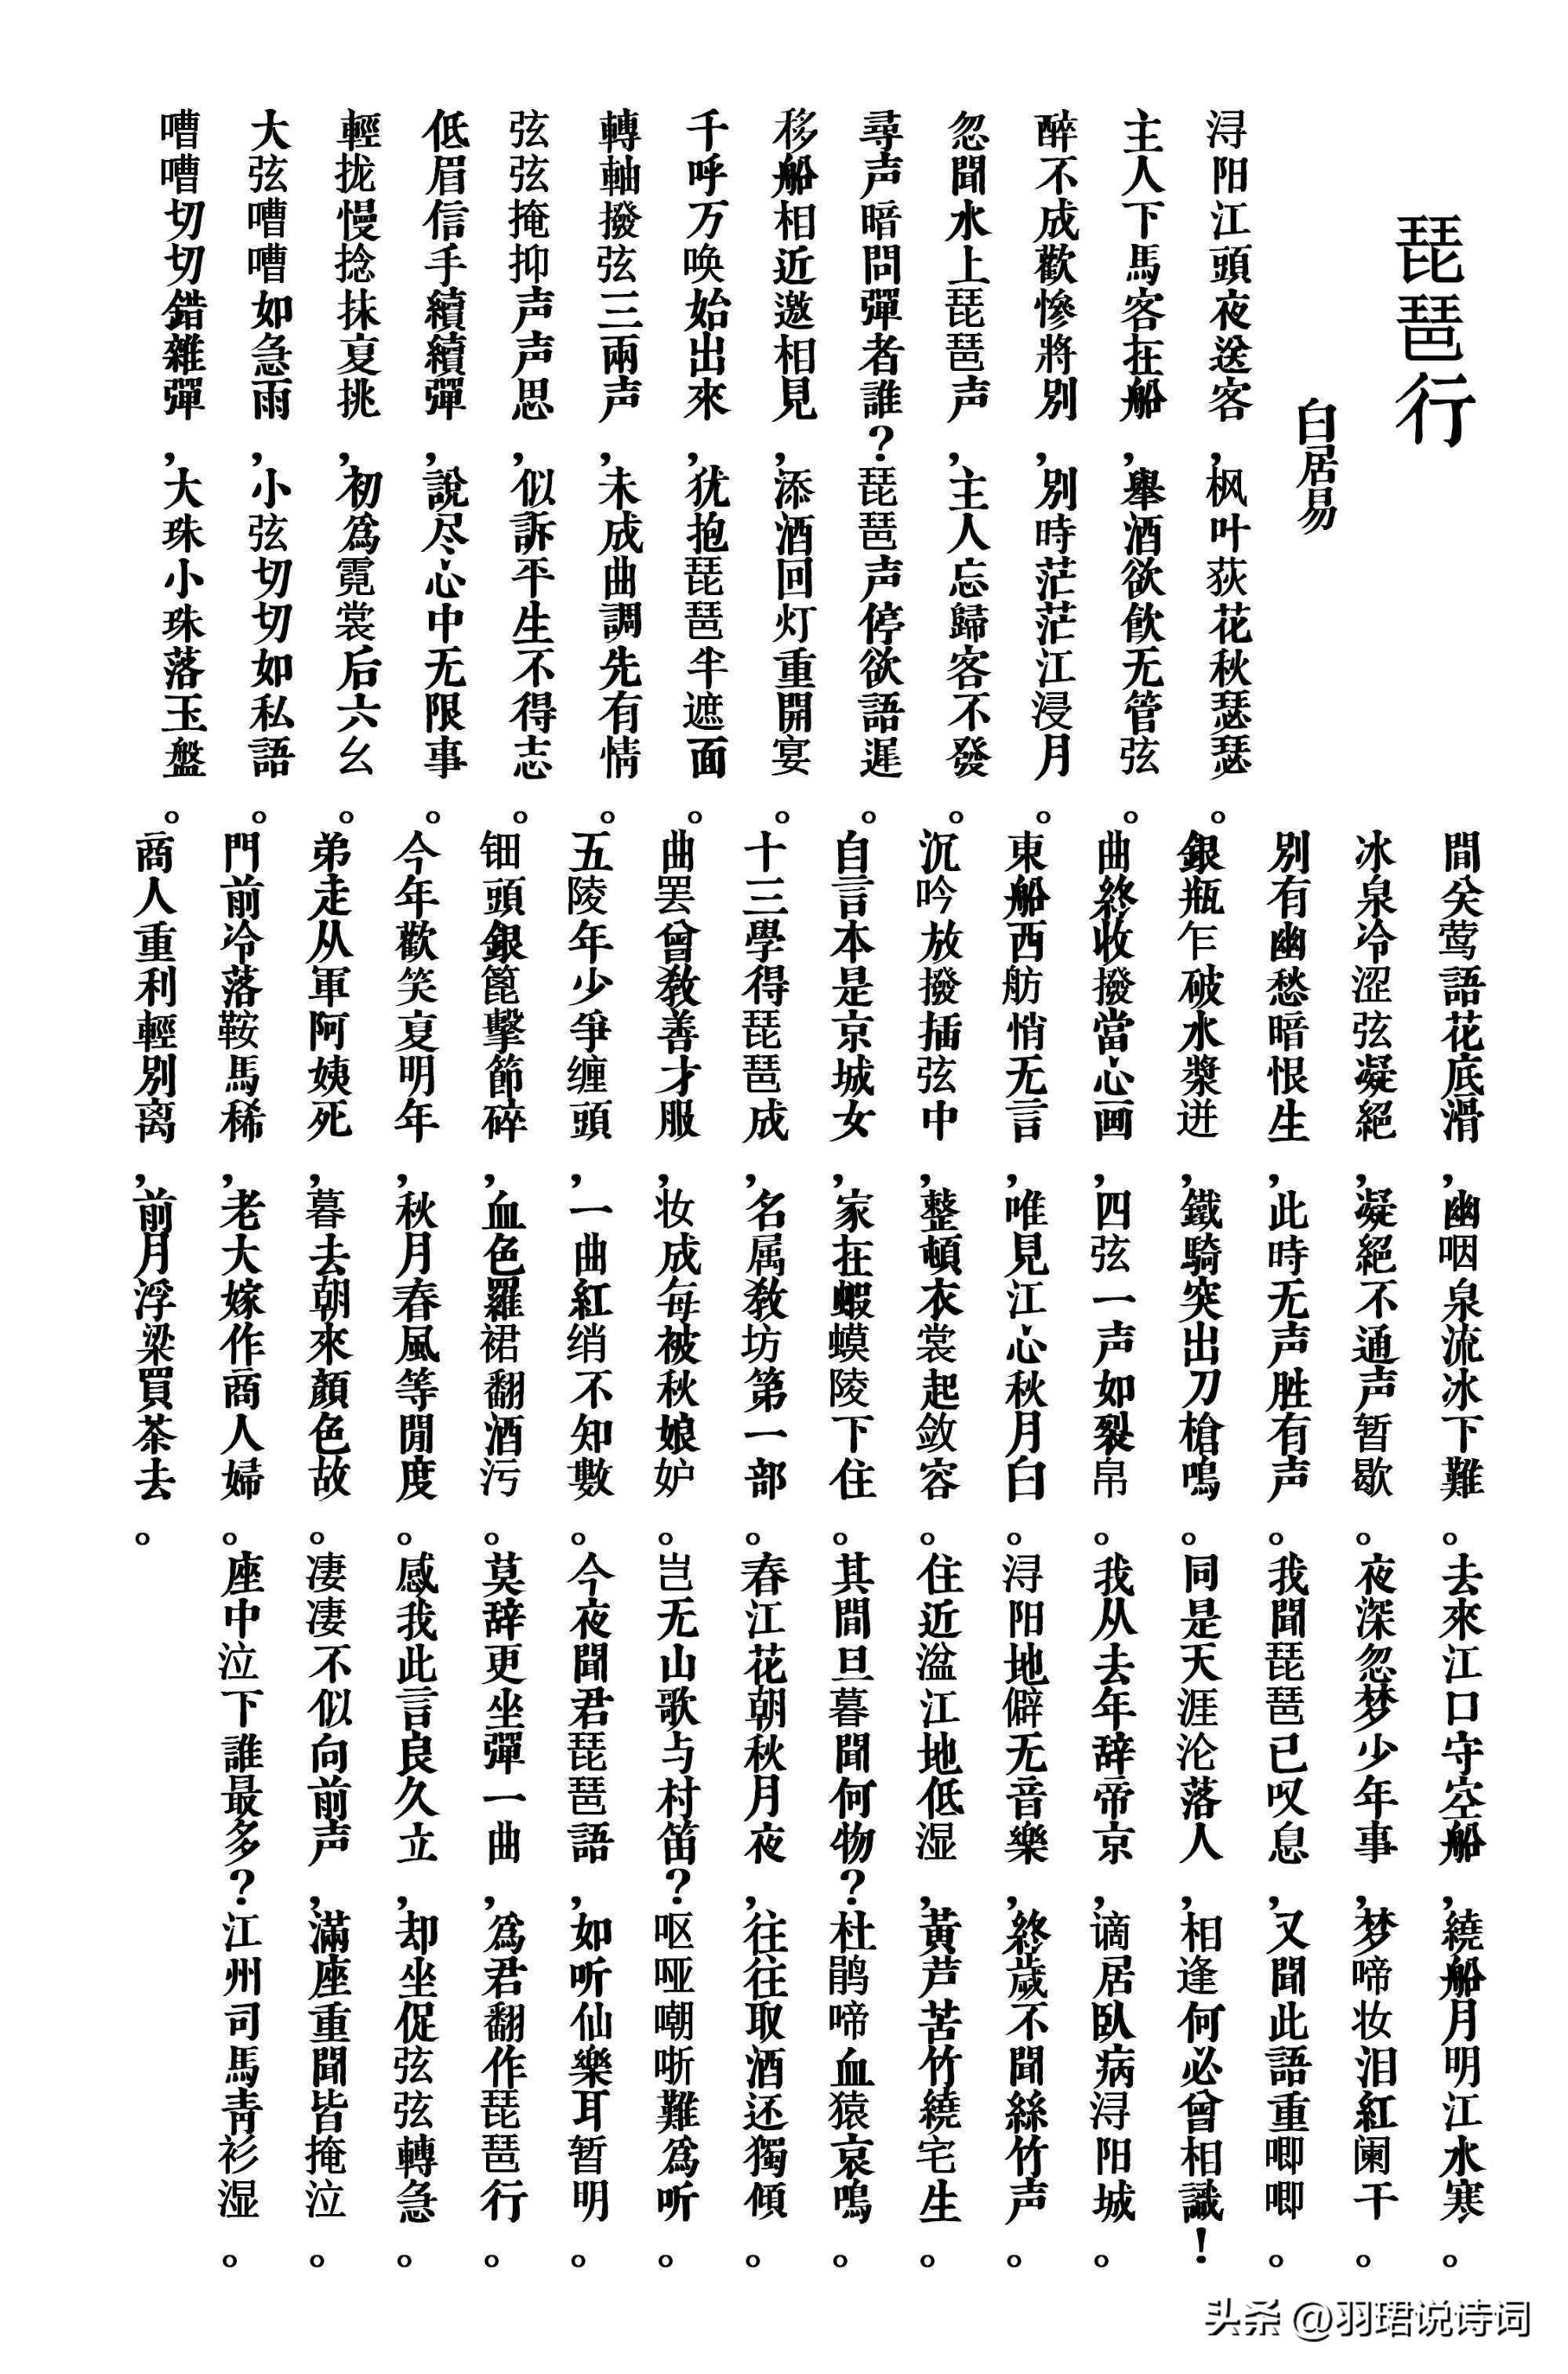 琵琶行
白居易
浔阳江頭夜送客，枫叶荻花秋瑟瑟。
主人下馬客在船，舉酒欲飲无管弦。
醉不成歡慘將別，別時茫茫江浸月。
忽聞水上琵琶声，主人忘歸客不發。
尋声暗問彈者誰？琵琶声停欲語遲。
移船相近邀相見，添酒回灯重開宴。
千呼万唤始出來，犹抱琵琶半遮面。
轉軸撥弦三兩声，未成曲調先有情。
弦弦掩抑声声思，似訴平生不得志。
低眉信手續續彈，說尽心中无限事。
輕拢慢捻抹夏挑，初爲霓裳后六幺。
大弦嘈嘈如急雨，小弦切切如私語。
嘈嘈切切錯雜彈，大珠小珠落玉盤。
間关莺語花底滑，幽咽泉流冰下難。
冰泉冷涩弦凝絕，凝絕不通声暂歇。
別有幽愁暗恨生，此時无声胜有声。
銀瓶乍破水漿迸，鐵騎突出刀槍鳴。
曲終收撥當心画，四弦一声如裂帛。
東船西舫悄无言，唯見江心秋月白。
沉吟放撥插弦中，整頓衣裳起敛容。
自言本是京城女，家在蝦蟆陵下住。
十三學得琵琶成，名属教坊第一部。
曲罢曾教善才服，妆成每被秋娘妒。
五陵年少爭缠頭，一曲紅绡不知數。
钿頭銀篦擊節碎，血色羅裙翻酒污。
今年歡笑夏明年，秋月春風等閒度。
弟走从軍阿姨死，暮去朝來顏色故。
門前冷落鞍馬稀，老大嫁作商人婦。
商人重利輕別离，前月浮梁買茶去。
去來江口守空船，繞船月明江水寒。
夜深忽梦少年事，梦啼妆泪紅阑干。
我聞琵琶已叹息，又聞此語重唧唧。
同是天涯沦落人，相逢何必曾相識！
我从去年辞帝京，谪居臥病浔阳城。
浔阳地僻无音樂，終歲不聞絲竹声。
住近湓江地低湿，黃芦苦竹繞宅生。
其間旦暮聞何物？杜鹃啼血猿哀鳴。
春江花朝秋月夜，往往取酒还獨傾。
岂无山歌与村笛？呕哑嘲哳難爲听。
今夜聞君琵琶語，如听仙樂耳暂明。
莫辞更坐彈一曲，爲君翻作琵琶行。
感我此言良久立，却坐促弦弦轉急。
凄凄不似向前声，滿座重聞皆掩泣。
座中泣下誰最多？江州司馬青衫湿。
头条 @羽珺说诗词